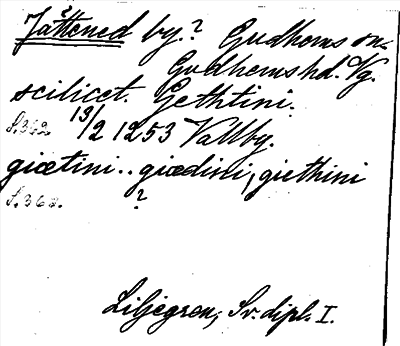 Jättened by? Gudhems sn.
Gudhems hd. Vg.
scilicet. Gethtini.
S.362 13/2 1253 Vallby.
giætini.. giædini, giethini
S.363. ?
Liljegren, Sv. dipl. I.